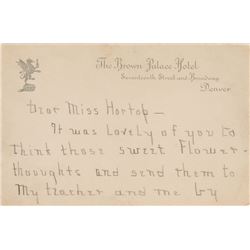 The Brown Palace Hotel
Seventeenth Street and Broadway
Denver
Dear Miss Hortop —
It was lovely of you to
think those sweet flower-
thoughts and send them to
my teacher and me by